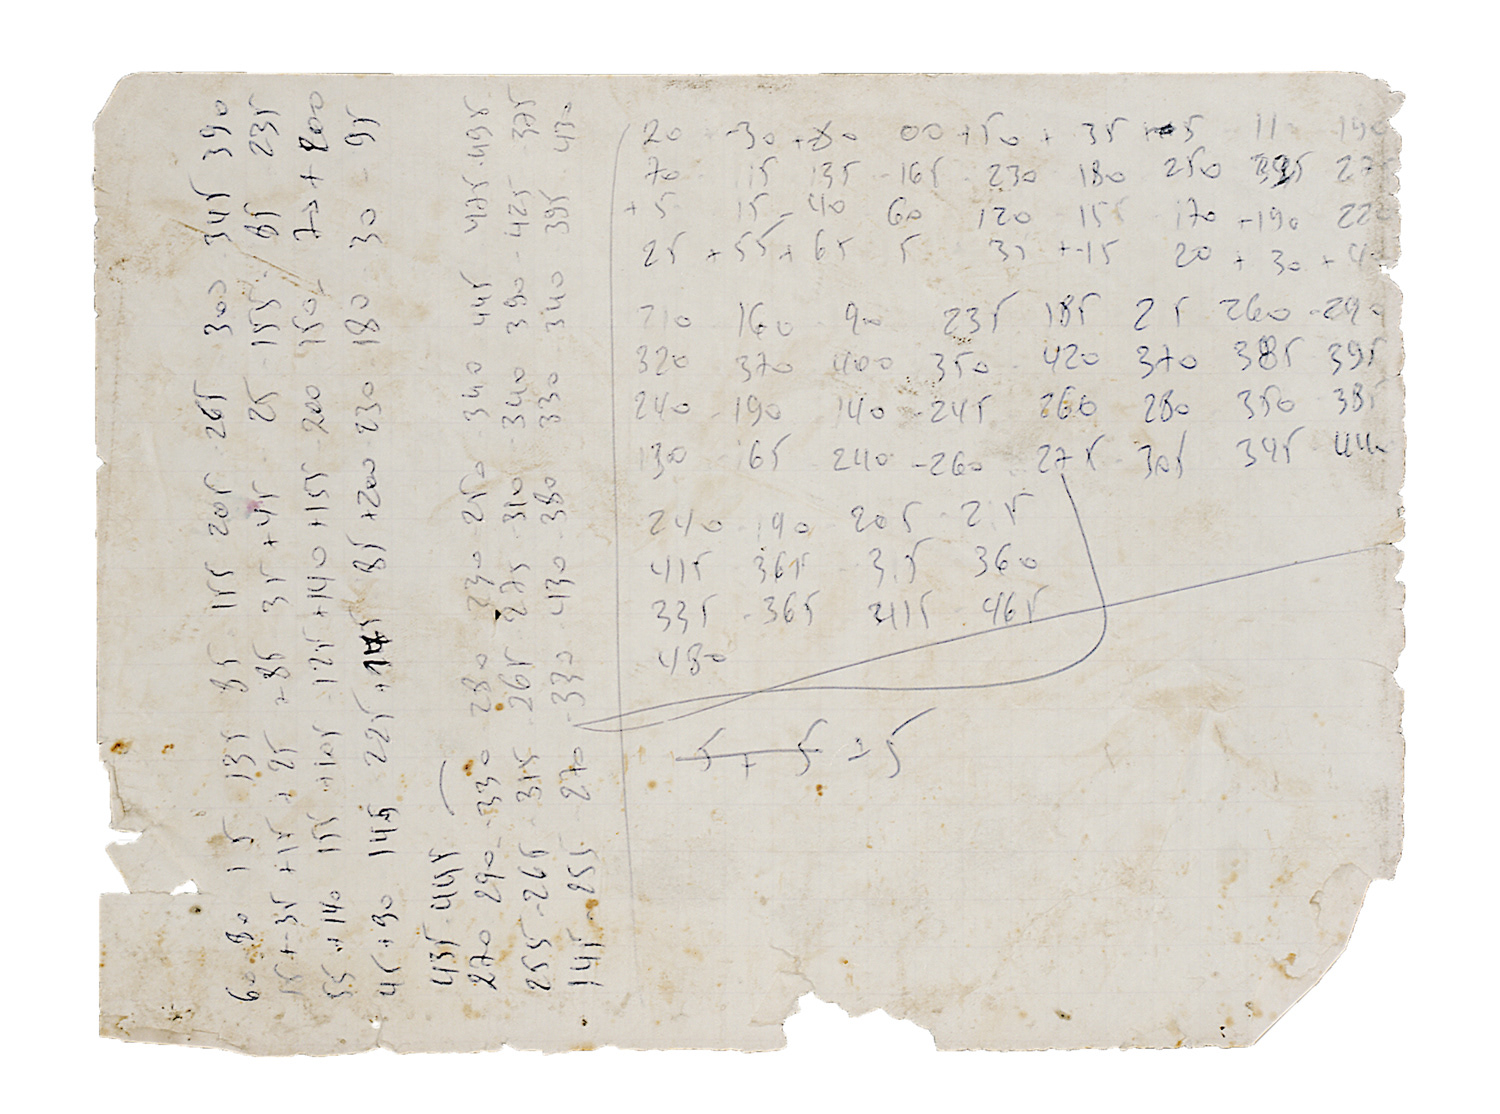 60 - 80 15 135 85 155 205 265 300 345 390
55 + 35 + 15 + 25 + 85 35 + 45 25 155 85 235
55 + 140 155 + 105 125 + 140 + 155 200 150 70 + 200
45 + 90 145 225 + 145 85 + 200 230 180 30 - 95
435 - 445
270 290 - 330 280 230 - 250 340 445 475 - 495
255 - 265 - 315 265 275 310 340 390 - 425 - 375
145 - 255 - 270 - 330 430 - 380 330 340 395 430
20 - 30 + 80 00 + 50 + 35 + 5 11 190
70 15 135 - 165 - 230 180 250 395
+ 5 15 - 40 60 120 - 155 170 - 190
25 + 55 + 65 5 35 + - 15 20 + 30 +
210 160 90 235 185 25 260 - 290
320 370 400 350 420 370 385 395
240 - 190 140 - 245 260 280 350 385
130 165 240 - 260 275 - 305 345 440
240 - 190 205 - 215
415 365 - 315 360
335 - 365 465
480
5 + 5 = 5